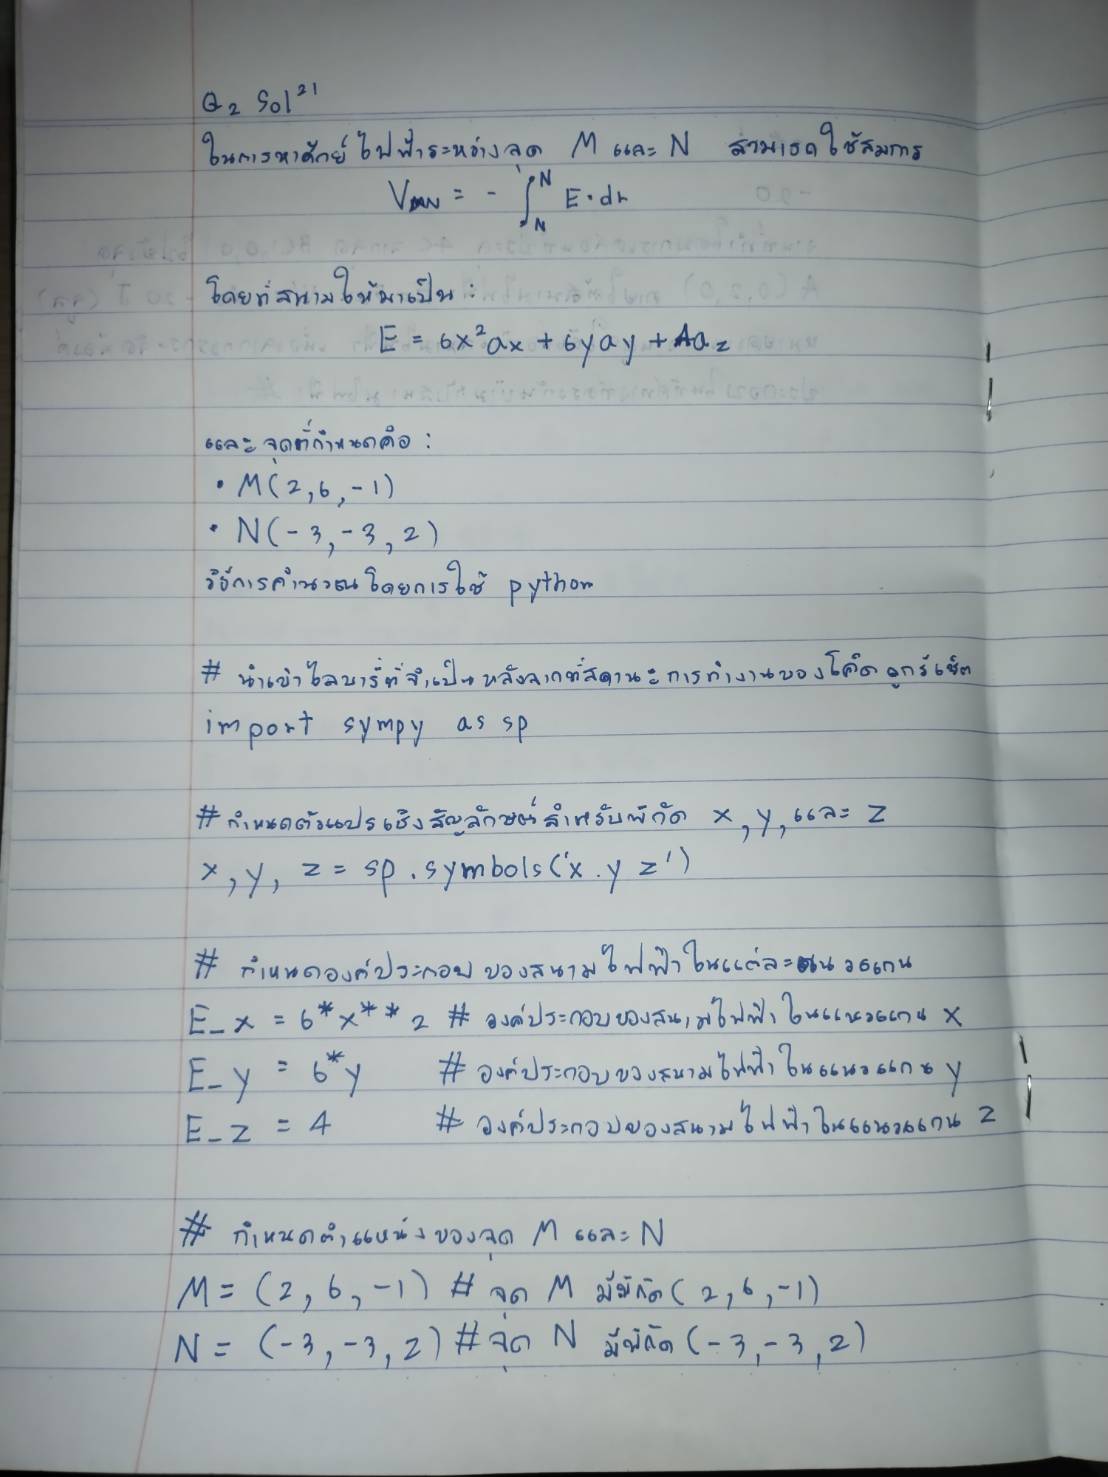 Q2 Sol21
ในการหาศักย์ไฟฟ้าระหว่างจุด M และ N สามารถใช้สมการ
VMN = - ∫NN E · dr
โดยที่สนามให้มาเป็น :
E = 6x²ax + 6yay + 4az
และจุดที่กำหนดคือ :
• M(2,6,-1)
• N(-3,-3,2)
วิธีการคำนวณโดยการใช้ python
# นำเข้าไลบารี่ที่จำเป็นหลังจากที่สถานะการทำงานของโค้ดถูกรีเซ็ต
import sympy as sp
# กำหนดตัวแปรเชิงสัญลักษณ์สำหรับพิกัด x,y,และ z
x,y, z = sp.symbols('x.y z')
# กำหนดองค์ประกอบของสนามไฟฟ้าในแต่ละแกน
E_x = 6*x**2 # องค์ประกอบของสนามไฟฟ้าในแนวแกน x
E_y = 6*y # องค์ประกอบของสนามไฟฟ้าในแนวแกน y
E_z = 4 # องค์ประกอบของสนามไฟฟ้าในแนวแกน z
# กำหนดตำแหน่งของจุด M และ N
M = (2,6,-1) # จุด M มีพิกัด(2,6,-1)
N = (-3,-3,2) # จุด N มีพิกัด(-3,-3,2)